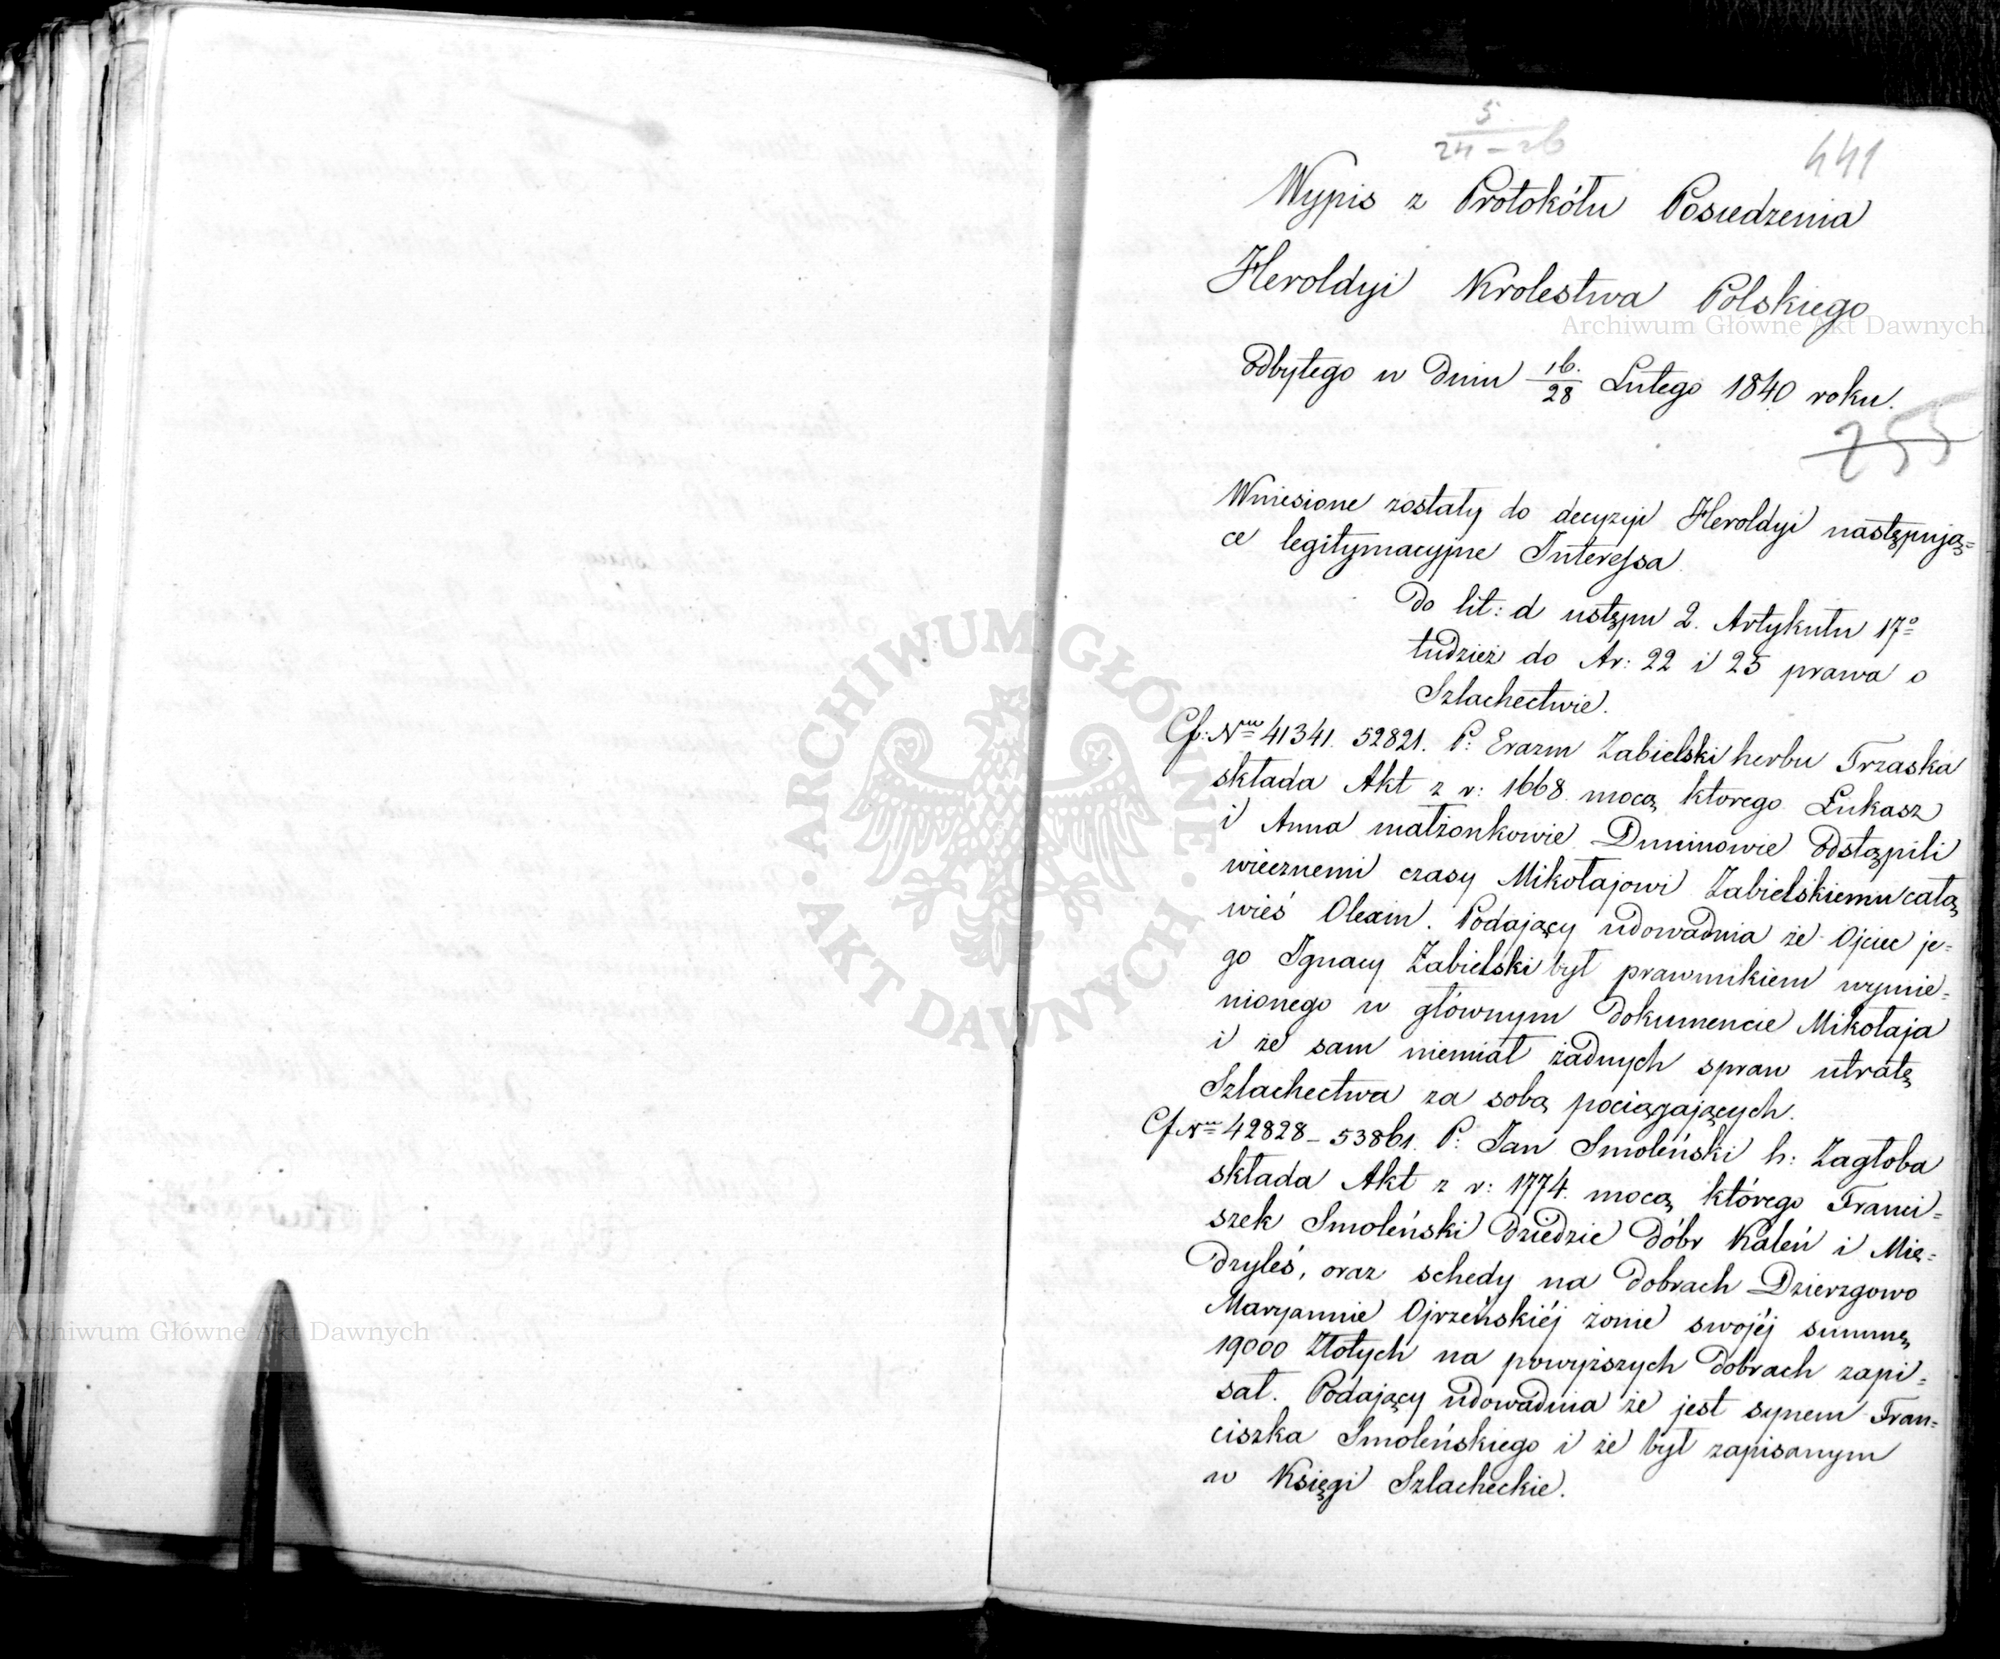 5
24-26
441
Wypis z Protokółu Posiedzenia
Heroldyi Krolestwa Polskiego
Archiwum Główne Akt Dawnych
odbytego w dniu 16/28 Lutego 1840 roku.
255
Wniesione zostały do decyzyi Heroldyi następują=
ce legitymacyjne Interessa
Do lit: d ustępu 2. Artykułu 17º
tudzież do Ar: 22 i 25 prawa o
Szlachectwie.
Cf: Nrw 41341. 52821. P: Erazm Zabielski herbu Trzaska
składa Akt z r: 1668 mocą ktorego Łukasz
i Anna małżonkowie Duninowie odstąpili
wiecznemi czasy Mikołajowi Zabielskiemu całą
wieś Olexin. Podający udowadnia że Ojciec je=
go Ignacy Zabielski był prawnukiem wymie=
nionego w głównym dokumencie Mikołaja
i że sam niemiał żadnych spraw utratę
Szlachectwa za sobą pociągających.
Cf Nrw 42828 - 53861. P: Jan Smoleński h: Zagłoba
składa Akt z r: 1774. mocą którego Franci=
szek Smoleński dziedzic dóbr Kaleń i Mię=
dzyleś, oraz schedy na dobrach Dzierzgowo
Maryannie Ojrzeńskiéj żonie swojéj summę
19000 Złotych na powyższych dobrach zapi=
sał. Podający udowadnia że jest synem Fran=
ciszka Smoleńskiego i że był zapisanym
w Księgi Szlacheckie.
ARCHIWUM GŁÓWNE
AKT DAWNYCH
Archiwum Główne Akt Dawnych